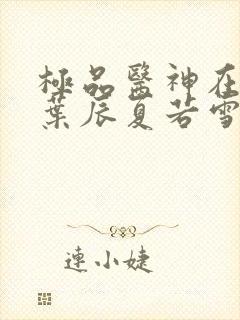 極品醫神在
葉辰夏若雪
連小婕